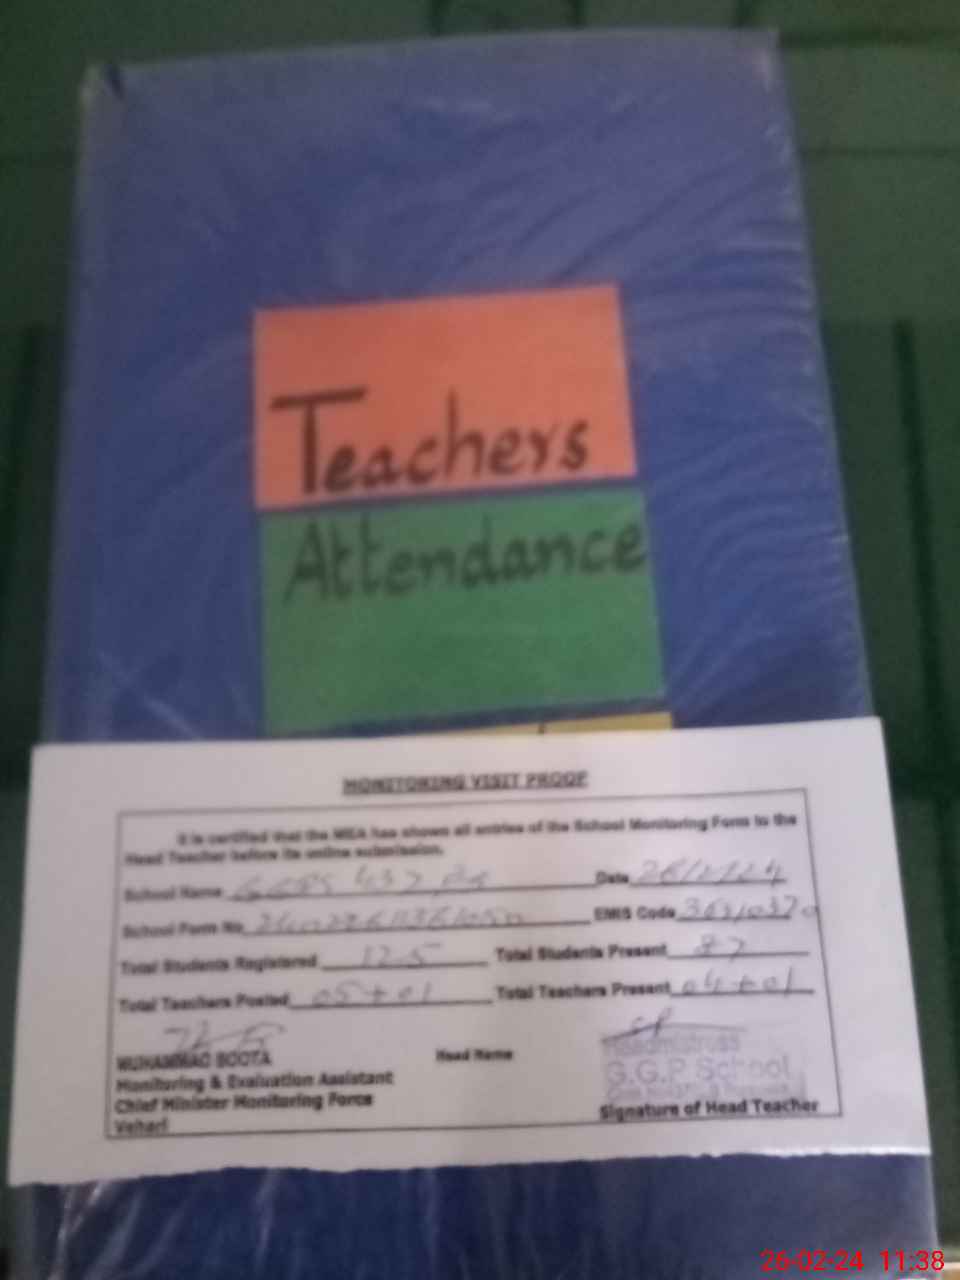 Teachers
Attendance
MONITORING VISIT PROOF
It is certified that the MEA has shown all entries of the School Monitoring Form to the
Head Teacher before its online submission.
School Name Date 26/2/24
School Form No EMIS Code
Total Students Registered 125 Total Students Present 87
Total Teachers Posted 05+01 Total Teachers Present 04+01
MUHAMMAD BOOTA Head Name
Monitoring & Evaluation Assistant
Chief Minister Monitoring Force
Vehari
Headmistress
G.G.P School
Signature of Head Teacher
26-02-24 11:38